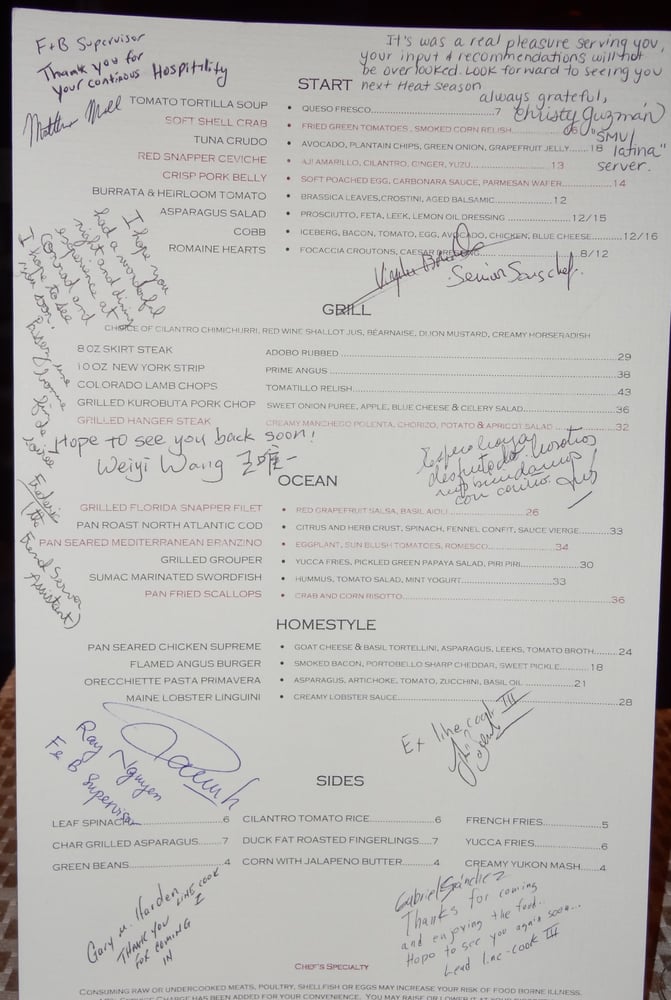 F+B Supervisor
Thank you for
your continous Hospitility
It's was a real pleasure serving you,
your input & recommendations will not
be overlooked. Look forward to seeing you
next Heat season
always grateful,
Christy Guzman
"SMV/
latina"
server.
START
TOMATO TORTILLA SOUP • QUESO FRESCO 7
SOFT SHELL CRAB • FRIED GREEN TOMATOES, SMOKED CORN RELISH
TUNA CRUDO • AVOCADO, PLANTAIN CHIPS, GREEN ONION, GRAPEFRUIT JELLY 18
RED SNAPPER CEVICHE • AJI AMARILLO, CILANTRO, GINGER, YUZU 13
CRISP PORK BELLY • SOFT POACHED EGG, CARBONARA SAUCE, PARMESAN WAFER 14
BURRATA & HEIRLOOM TOMATO • BRASSICA LEAVES, CROSTINI, AGED BALSAMIC 12
ASPARAGUS SALAD • PROSCIUTTO, FETA, LEEK, LEMON OIL DRESSING 12/15
COBB • ICEBERG, BACON, TOMATO, EGG, AVOCADO, CHICKEN, BLUE CHEESE 12/16
ROMAINE HEARTS • FOCACCIA CROUTONS, CAESAR DRESSING 8/12
I hope you
had a wonderful
night and dining
experience at
Conrad and
I hope to see
you soon!
Senior Sous chef.
GRILL
CHOICE OF CILANTRO CHIMICHURRI, RED WINE SHALLOT JUS, BÉARNAISE, DIJON MUSTARD, CREAMY HORSERADISH
8 OZ SKIRT STEAK ADOBO RUBBED 29
10 OZ NEW YORK STRIP PRIME ANGUS 38
COLORADO LAMB CHOPS TOMATILLO RELISH 43
GRILLED KUROBUTA PORK CHOP SWEET ONION PUREE, APPLE, BLUE CHEESE & CELERY SALAD 36
GRILLED HANGER STEAK CREAMY MANCHEGO POLENTA, CHORIZO, POTATO & APRICOT SALAD 32
Hope to see you back soon!
Weiyi Wang 王唯一
Passez une
bonne
fin de
soirée
Frederic
(the
French Server
Assistant)
OCEAN
GRILLED FLORIDA SNAPPER FILET • RED GRAPEFRUIT SALSA, BASIL AIOLI 26
PAN ROAST NORTH ATLANTIC COD • CITRUS AND HERB CRUST, SPINACH, FENNEL CONFIT, SAUCE VIERGE 33
PAN SEARED MEDITERRANEAN BRANZINO • EGGPLANT, SUN BLUSH TOMATOES, ROMESCO 34
GRILLED GROUPER • YUCCA FRIES, PICKLED GREEN PAPAYA SALAD, PIRI PIRI 30
SUMAC MARINATED SWORDFISH • HUMMUS, TOMATO SALAD, MINT YOGURT 33
PAN FRIED SCALLOPS • CRAB AND CORN RISOTTO 36
HOMESTYLE
PAN SEARED CHICKEN SUPREME • GOAT CHEESE & BASIL TORTELLINI, ASPARAGUS, LEEKS, TOMATO BROTH 24
FLAMED ANGUS BURGER • SMOKED BACON, PORTOBELLO SHARP CHEDDAR, SWEET PICKLE 18
ORECCHIETTE PASTA PRIMAVERA • ASPARAGUS, ARTICHOKE, TOMATO, ZUCCHINI, BASIL OIL 21
MAINE LOBSTER LINGUINI • CREAMY LOBSTER SAUCE 28
Ray
Nguyen
F&B Supervisor
Ex line cook III
SIDES
LEAF SPINACH 6 CILANTRO TOMATO RICE 6 FRENCH FRIES 5
CHAR GRILLED ASPARAGUS 7 DUCK FAT ROASTED FINGERLINGS 7 YUCCA FRIES 6
GREEN BEANS 4 CORN WITH JALAPENO BUTTER 4 CREAMY YUKON MASH 4
Gary M. Harden
LINE COOK
I
THANK YOU
FOR COMING
IN
Gabriel Sánchez
Thanks for coming
and enjoying the food..
Hope to see you again soon...
Lead line-cook III
CHEF'S SPECIALTY
CONSUMING RAW OR UNDERCOOKED MEATS, POULTRY, SHELLFISH OR EGGS MAY INCREASE YOUR RISK OF FOOD BORNE ILLNESS.